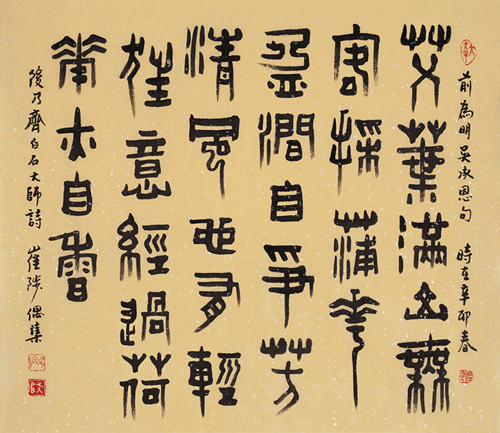 前為明吳承恩句 時在辛卯春
艾葉滿山無
客採蒲花
盈澗自爭芳
清風也有輕
狂意經過荷
花亦自香
後乃齊白石大師詩 崔陟偶集